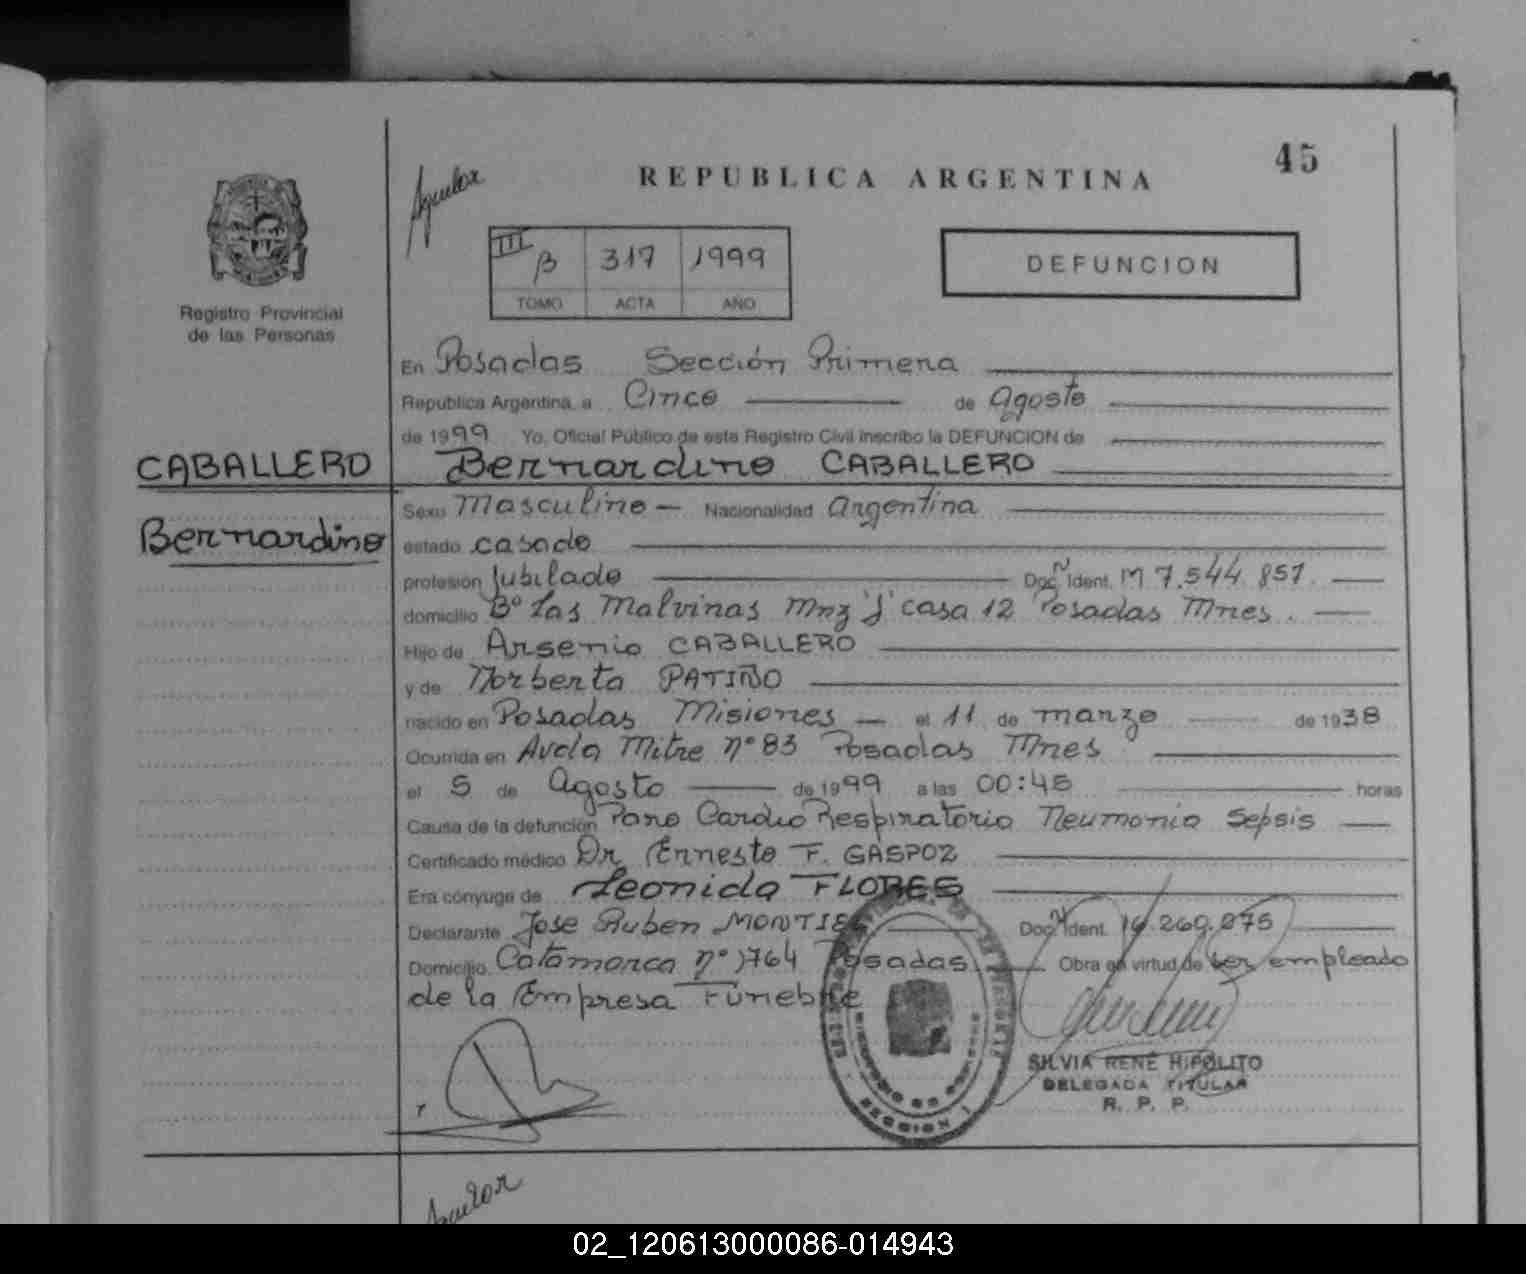 45
REPUBLICA ARGENTINA
Aguilar
III B 317 1999
TOMO ACTA AÑO
DEFUNCION
Registro Provincial
de las Personas
En Posadas Sección Primera
República Argentina, a Cinco de Agosto
de 1999 Yo, Oficial Público de este Registro Civil inscribo la DEFUNCION de
CABALLERO
Bernardino CABALLERO
Bernardino
Sexo Masculino - Nacionalidad Argentina
estado casado
profesión Jubilado Doc. N Ident. M 7.544.857
domicilio Bº Las Malvinas Mnz "J" casa 12 Posadas Mnes.
Hijo de Arsenio CABALLERO
y de Norberta PATIÑO
nacido en Posadas Misiones - el 11 de marzo de 1938
Ocurrida en Avda Mitre nº 83 Posadas Mnes
el 5 de Agosto de 1999 a las 00:45 horas
Causa de la defunción Paro Cardio Respiratorio Neumonia Sepsis
Certificado médico Dr Ernesto F. GASPOZ
Era cónyuge de Leonida FLORES
Declarante Jose Ruben MONTIEL Doc. N Ident. 16.260.275
Domicilio Catamarca nº 1764 Posadas Obra en virtud de ser empleado
de la Empresa Funebre
SILVIA RENE HIPOLITO
DELEGADA TITULAR
R. P. P.
SECCION 1
Aguilar
02_120613000086-014943